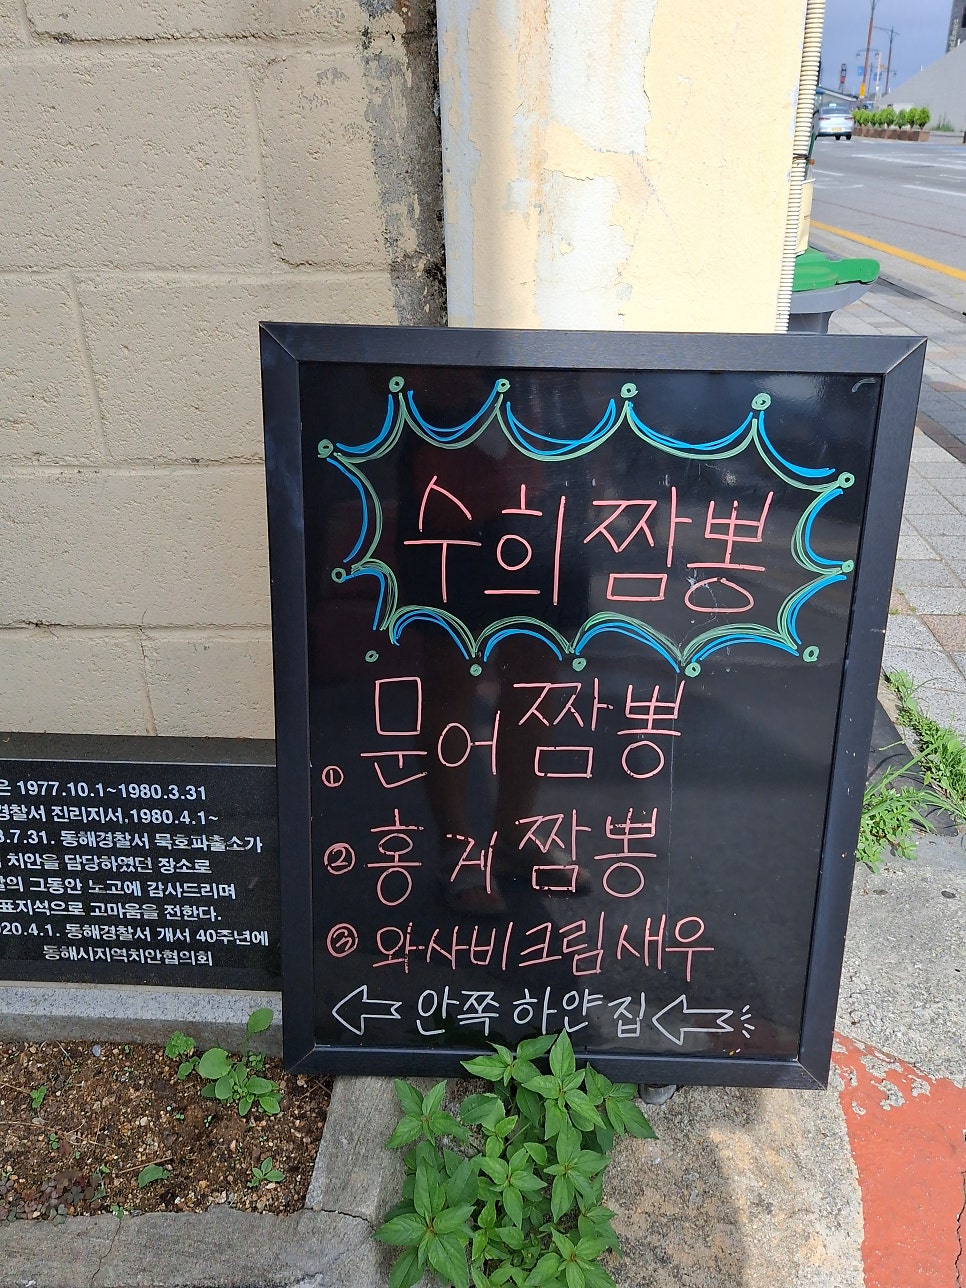 수희짬뽕
① 문어짬뽕
② 홍게짬뽕
③ 와사비크림새우
안쪽 하얀집
은 1977.10.1~1980.3.31
경찰서 진리지서,1980.4.1~
.7.31. 동해경찰서 묵호파출소가
치안을 담당하였던 장소로
의 그동안 노고에 감사드리며
표지석으로 고마움을 전한다.
020.4.1. 동해경찰서 개서 40주년에
동해시지역치안협의회